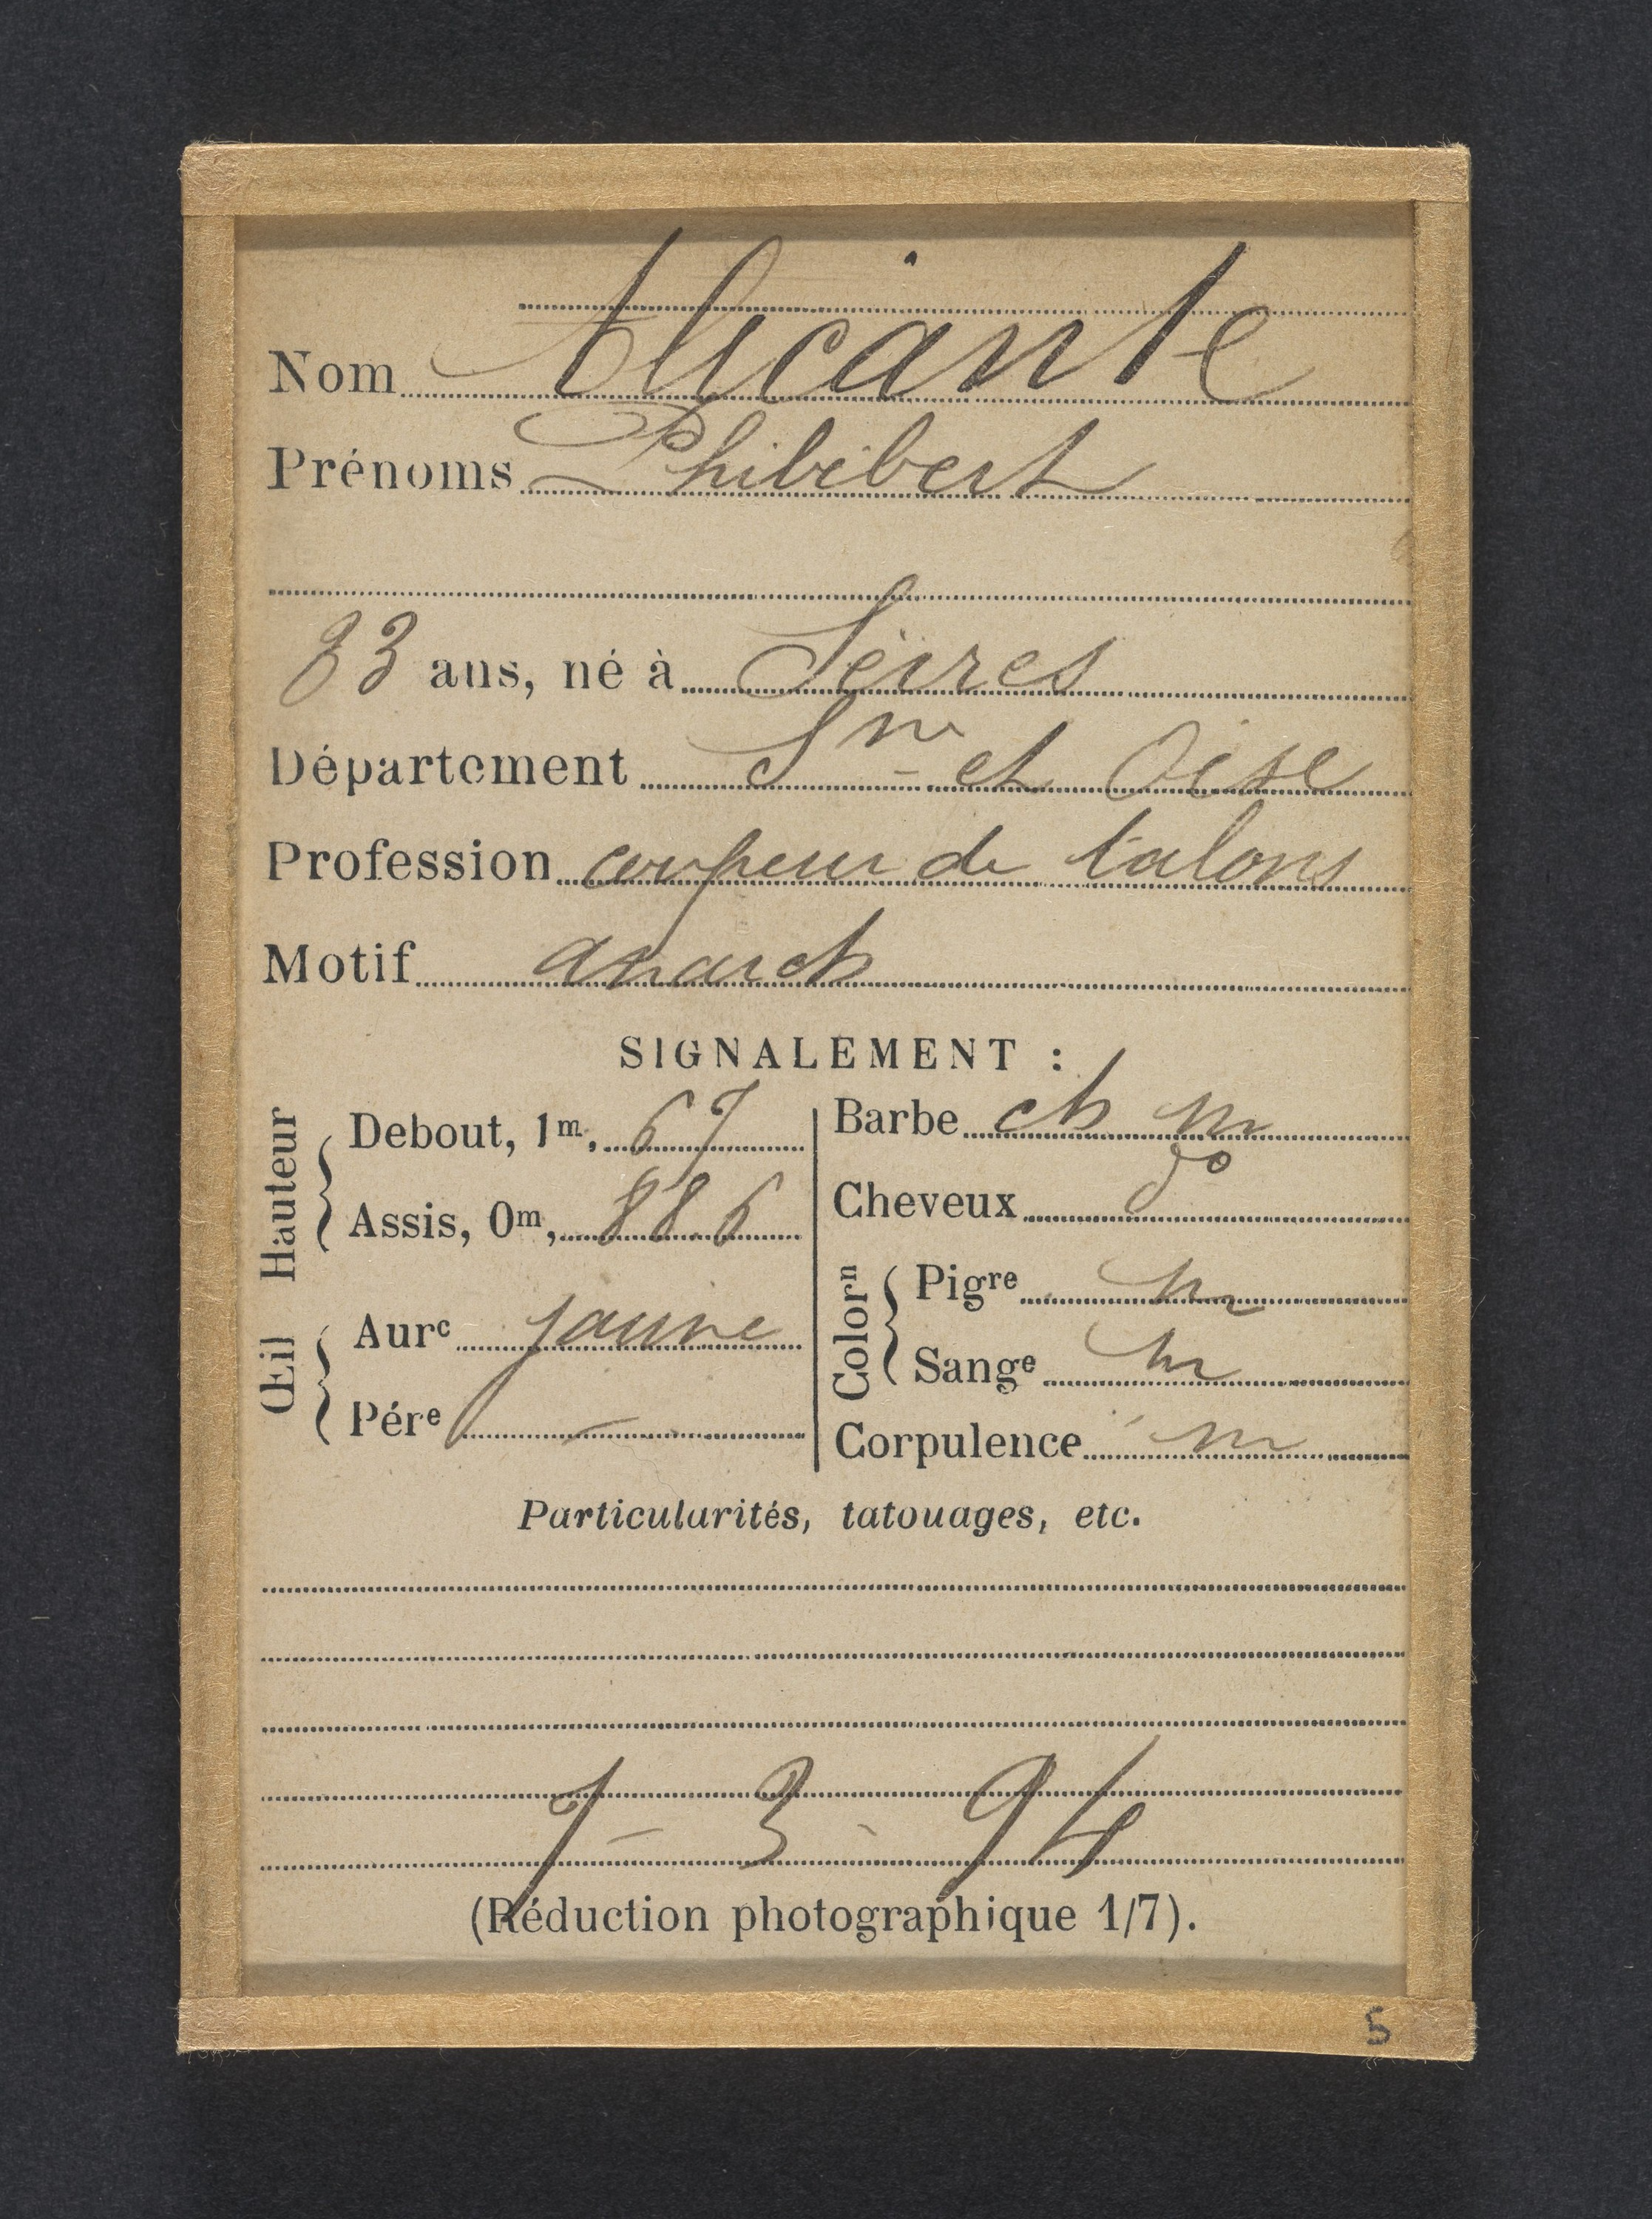 Nom Alicante
Prénoms Philibert
23 ans, né à Sèvres
Département Sne et Oise
Profession coupeur de talons
Motif anarch
SIGNALEMENT :
Hauteur
Debout, 1m, 67
Assis, 0m, 88.6
Œil
Aure jaune
Pére –
Barbe ch m
Cheveux do
Colorn
Pigre m
Sange m
Corpulence m
Particularités, tatouages, etc.
7 – 3 – 94
(Réduction photographique 1/7).
5